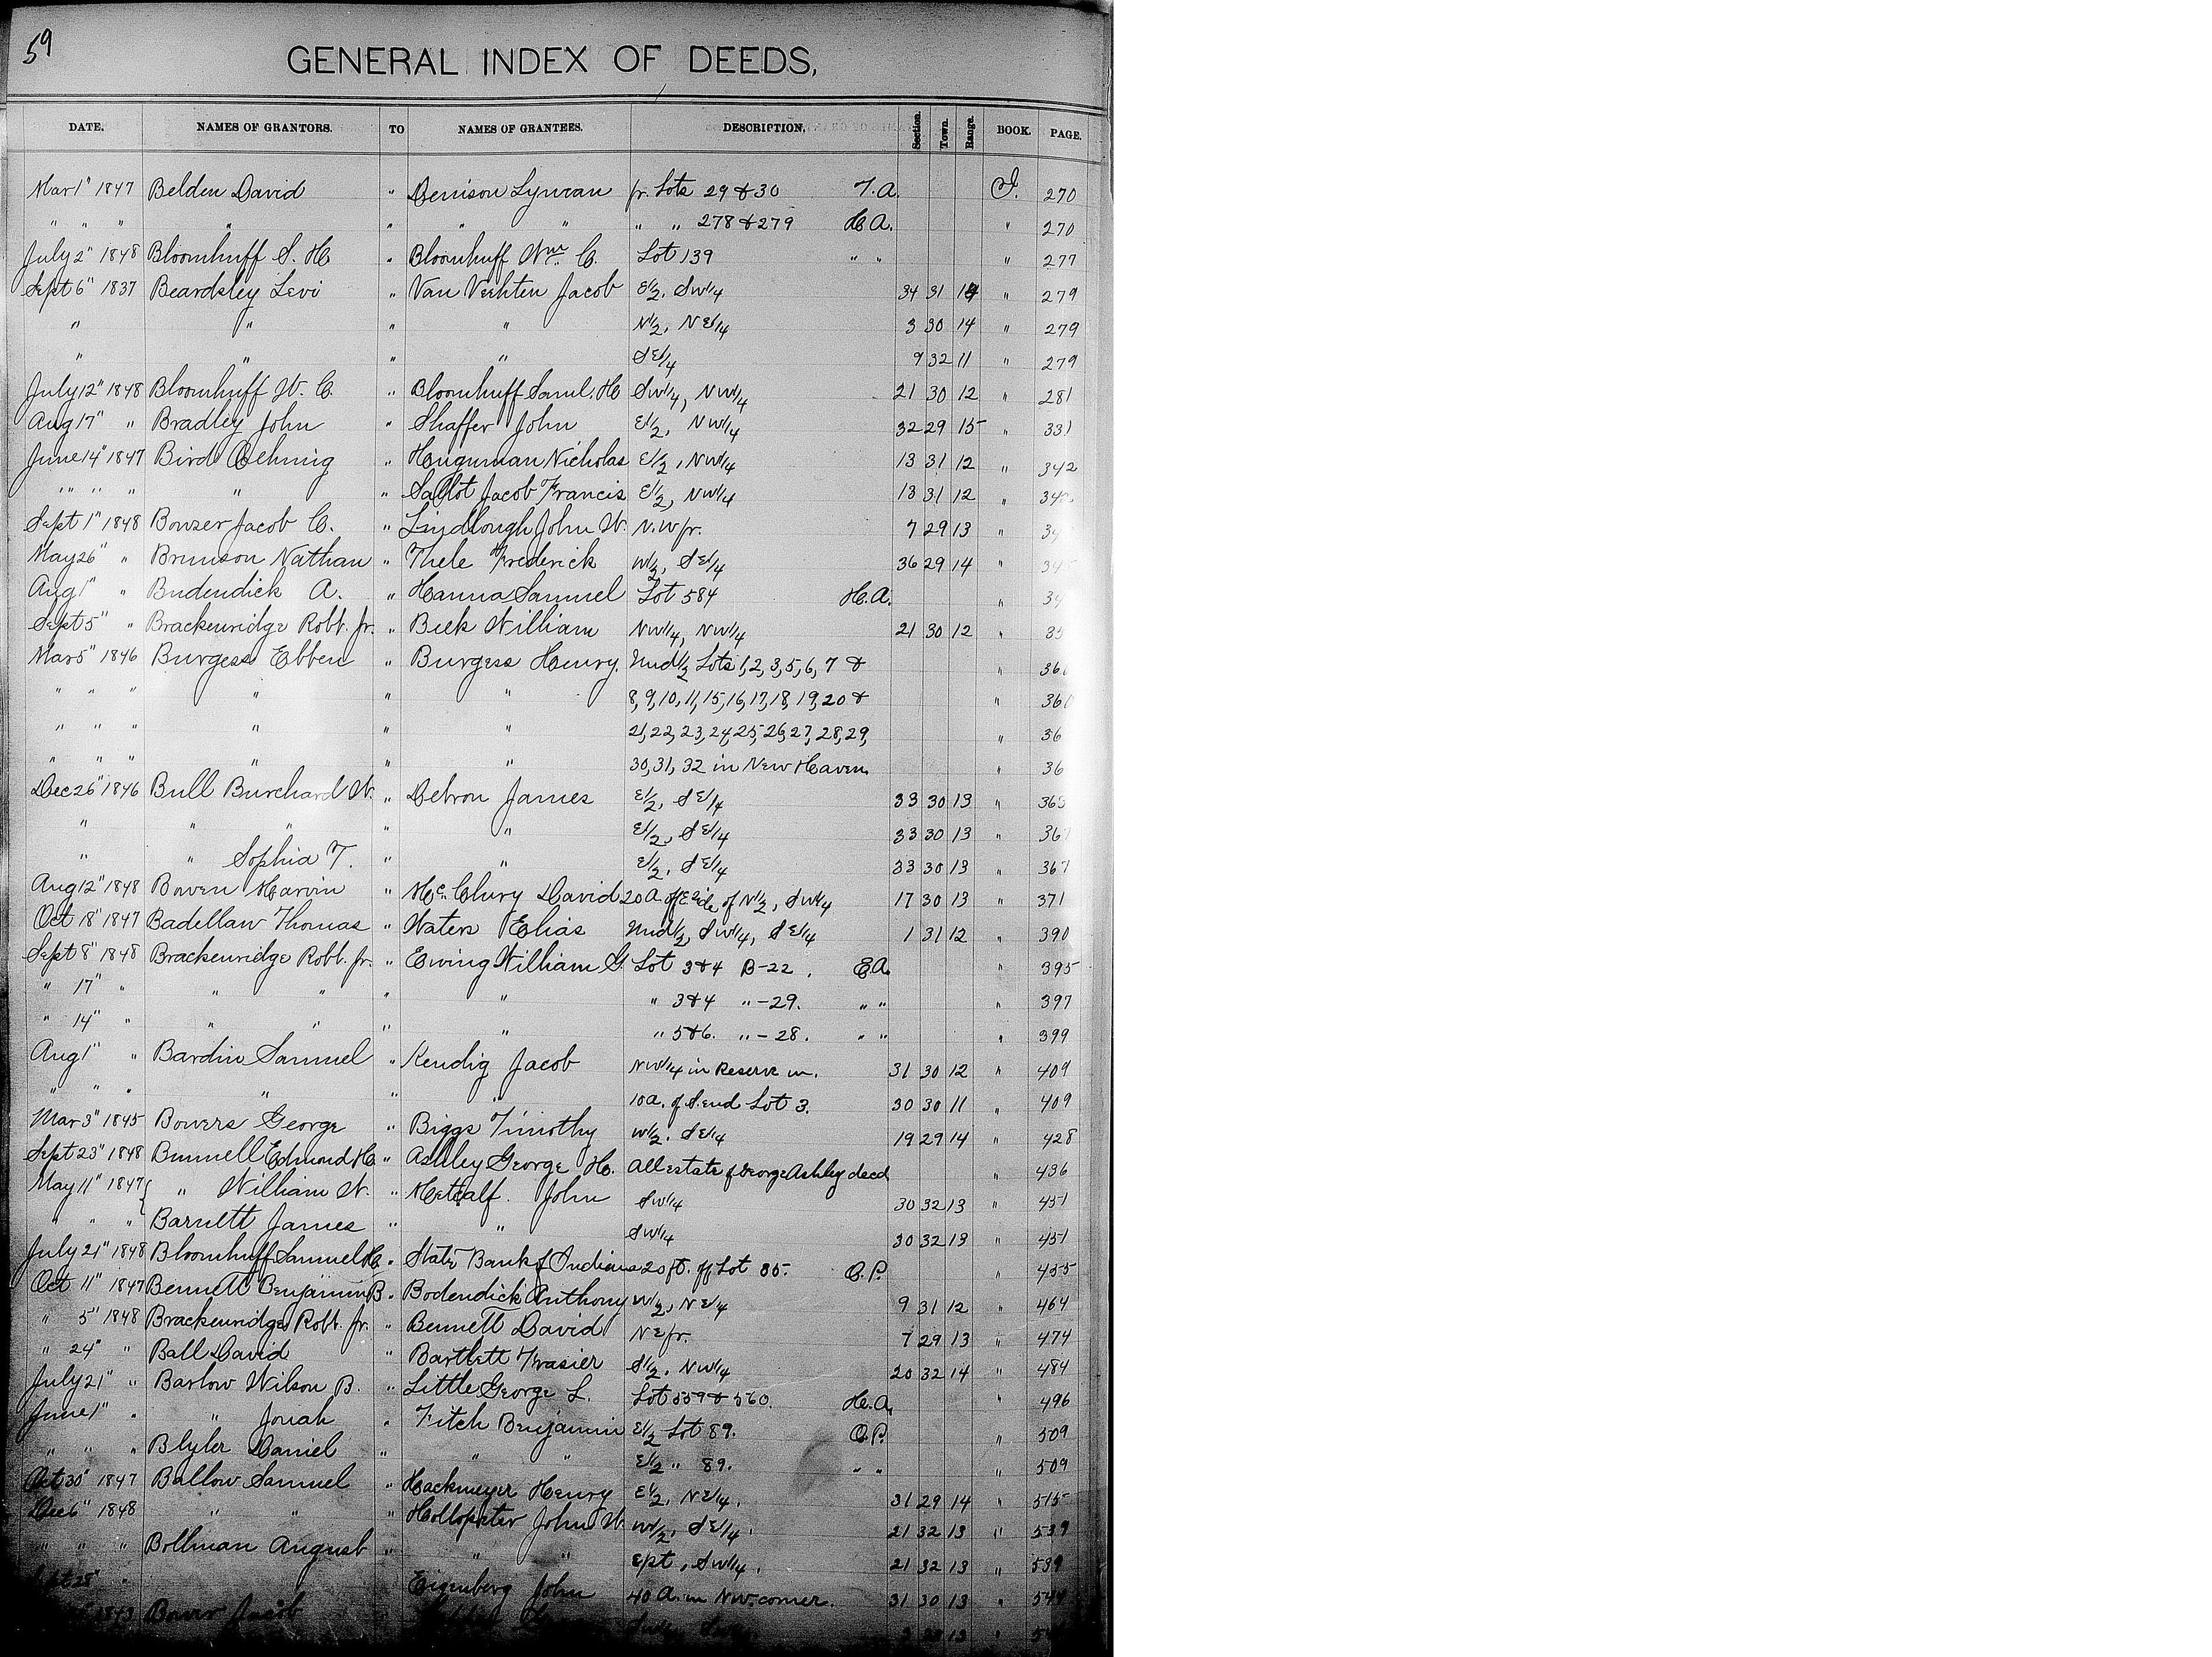 59
GENERAL INDEX OF DEEDS,
DATE. NAMES OF GRANTORS. TO NAMES OF GRANTEES. DESCRIPTION, Section. Town. Range. BOOK. PAGE.
Mar 1" 1847 Belden David " Denison Lyman pr. Lots 29 & 30 T.A. I. 270
" " " " " " " " " 278 & 279 H.A. " 270
July 2" 1848 Bloomhuff S. H. " Bloomhuff Wm. C. Lot 139 " " " 277
Sept 6" 1837 Beardsley Levi " Van Vechten Jacob E1/2. SW1/4 34 31 14 " 279
" " " " N1/2, NE1/4 3 30 14 " 279
" " " " SE1/4 9 32 11 " 279
July 12" 1848 Bloomhuff W. C. " Bloomhuff Saml. H. SW1/4, NW1/4 21 30 12 " 281
Aug 17" " Bradley John " Shaffer John E1/2, NW1/4 32 29 15 " 331
June 14" 1847 Bird Ochmig " Huguman Nicholas E1/2, NW1/4 13 31 12 " 342
" " " " " " Sallot Jacob Francis E1/2, NW1/4 13 31 12 " 342
Sept 1" 1848 Bowzer Jacob C. " Lindlough John W. N.W fr. 7 29 13 "
May 26" " Brunson Nathan " Thele Frederick W1/2, SE1/4 36 29 14 " 345
Aug 1" " Budendick A. " Hanna Samuel Lot 584 H.A. "
Sept 5" " Brackenridge Robt. Jr. " Beek William NW1/4, NW1/4 21 30 12 "
Mar 5" 1846 Burgess Ebben " Burgess Henry. Und1/2 Lots 1,2,3,5,6,7 & " 360
" " " " " " 8,9,10,11,15,16,17,18,19,20 & " 360
" " " " " " 21,22,23,24,25,26,27,28,29, " 36
" " " " " " 30,31,32 in New Haven. " 36
Dec 26" 1846 Bull Burchard W. " Debron James E1/2, SE1/4 33 30 13 " 365
" " " " " E1/2, SE1/4 33 30 13 " 367
" " Sophia T. " " E1/2, SE1/4 33 30 13 " 367
Aug 12" 1848 Bowen Marvin " McClury David 20 A. off E side of N1/2, SW1/4 17 30 13 " 371
Oct 18" 1847 Badellaw Thomas " Waters Elias Und1/2, SW1/4, SE1/4 1 31 12 " 390
Sept 8" 1848 Brackenridge Robt. Jr. " Ewing William G. Lot 3 & 4 B-22. E.A. " 395
" 17" " " " " " " 3 & 4 "-29. " " " 397
" 14" " " " " " " 5 & 6. "-28. " " " 399
Aug 1" " Bardin Samuel " Kendig Jacob NW1/4 in Reserve in. 31 30 12 " 409
" " " " " " 10 a. of S. end Lot 3. 30 30 11 " 409
Mar 3" 1845 Bowers George " Biggs Timothy W1/2. SE1/4 19 29 14 " 428
Sept 23" 1848 Bunnell Edmund H. " Ashley George H. All estate of George Ashley decd " 436
May 11" 1847 " William W. " Metcalf. John SW1/4 30 32 13 " 451
" " " Barnett James " " SW1/4 30 32 13 " 451
July 21" 1848 Bloomhuff Samuel H. " State Bank of Indiana 20 ft. off Lot 85. O.P. " 455
Oct 11" 1847 Bennett Benjamin B. " Bodendick Anthony W1/2, NE1/4 9 31 12 " 464
" 5" 1848 Brackenridge Robt. Jr. " Bennett David NE fr. 7 29 13 " 474
" 24" " Ball David " Bartlett Frasier S1/2. NW1/4 20 32 14 " 484
July 21" " Barlow Wilson B. " Little George L. Lot 559 & 560. H.A. " 496
June 1" " " Josiah " Fitch Benjamin E1/2 Lot 89. O.P. " 509
" " " Blyler Daniel " " " E1/2 " 89. " " " 509
Oct 30" 1847 Ballow Samuel " Hackmeyer Henry E1/2, NE1/4. 31 29 14 " 515
Dec 6" 1848 " " " Hollopeter John W. W1/2, SE1/4. 21 32 13 " 539
" " " Bollman August " " " E pt, SW1/4. 21 32 13 " 539
28" " Eigenberg John 40 A. in NW. corner. 31 30 13 " 544
1843 Bower Jacob 13 "